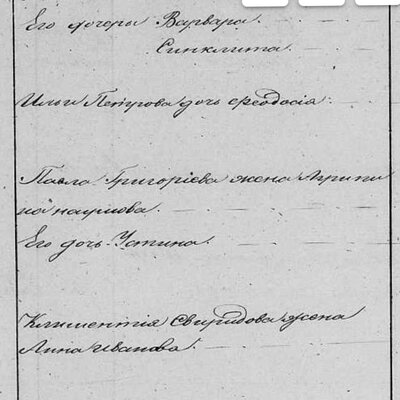 Его дочери Варвара
Синклита
Ильи Петрова дочь Феодосія
Павла Григоріева жена Агрипи
на Наумова.
Его дочь Устина.
Климентія Свиридова жена
Анна Иванова.